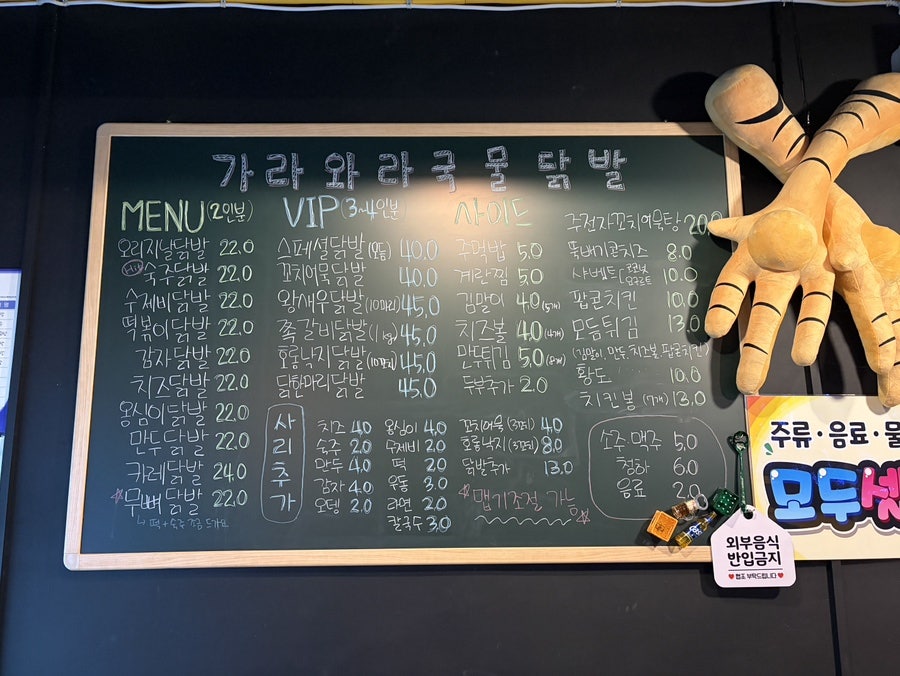 가라와라국물닭발
MENU(2인분)
오리지날닭발 22.0
Hit 숙주닭발 22.0
수제비닭발 22.0
떡볶이닭발 22.0
감자닭발 22.0
치즈닭발 22.0
옹심이닭발 22.0
만두닭발 22.0
카레닭발 24.0
무뼈닭발 22.0
VIP(3~4인분)
스페셜닭발(모듬) 40.0
꼬치어묵닭발 40.0
왕새우닭발(10마리) 45.0
쪽갈비닭발(1kg) 45.0
호롱낙지닭발(10꼬치) 45.0
닭한마리닭발 45.0
사이드
주먹밥 5.0
계란찜 5.0
김말이 4.0(5개)
치즈볼 4.0(4개)
만두튀김 5.0
두부추가 2.0
주전자꼬치어묵탕 20.0
뚝배기콘치즈 8.0
샤베트 10.0
팝콘치킨 10.0
모듬튀김 13.0
(김말이, 만두, 치즈볼, 팝콘치킨)
황도 10.0
치킨봉(7개) 13.0
사리추가
치즈 4.0
숙주 2.0
만두 4.0
감자 4.0
오뎅 2.0
옹심이 4.0
수제비 2.0
떡 2.0
우동 3.0
라면 2.0
칼국수 3.0
꼬치어묵(3꼬치) 4.0
호롱낙지(3꼬치) 8.0
닭발추가 13.0
맵기조절 가능
소주·맥주 5.0
청하 6.0
음료 2.0
주류·음료·물
모두셋
외부음식
반입금지
협조 부탁드립니다